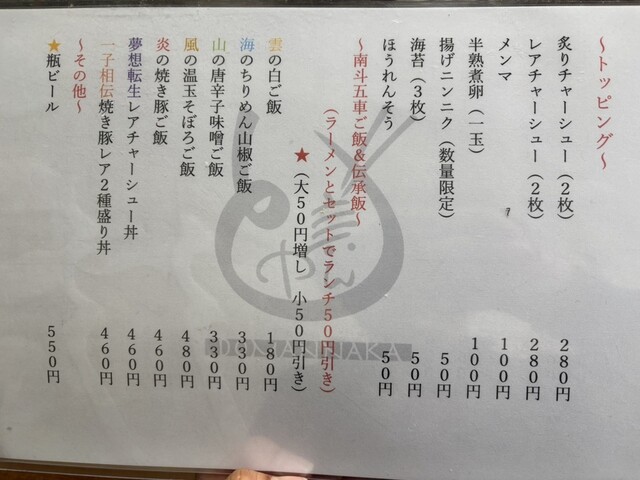 ～トッピング～
炙りチャーシュー（２枚） ２８０円
レアチャーシュー（２枚） ２８０円
メンマ １００円
半熟煮卵（一玉） １００円
揚げニンニク（数量限定） ５０円
海苔（３枚） ５０円
ほうれんそう ５０円
～南斗五車ご飯＆伝承飯～
（ラーメンとセットでランチ５０円引き）
★（大５０円増し 小５０円引き）
雲の白ご飯 １８０円
海のちりめん山椒ご飯 ３３０円
山の唐辛子味噌ご飯 ３３０円
風の温玉そぼろご飯 ４８０円
炎の焼き豚ご飯 ４６０円
夢想転生レアチャーシュー丼 ４６０円
一子相伝焼き豚レア２種盛り丼 ４６０円
～その他～
★瓶ビール ５５０円
DONANINAKA